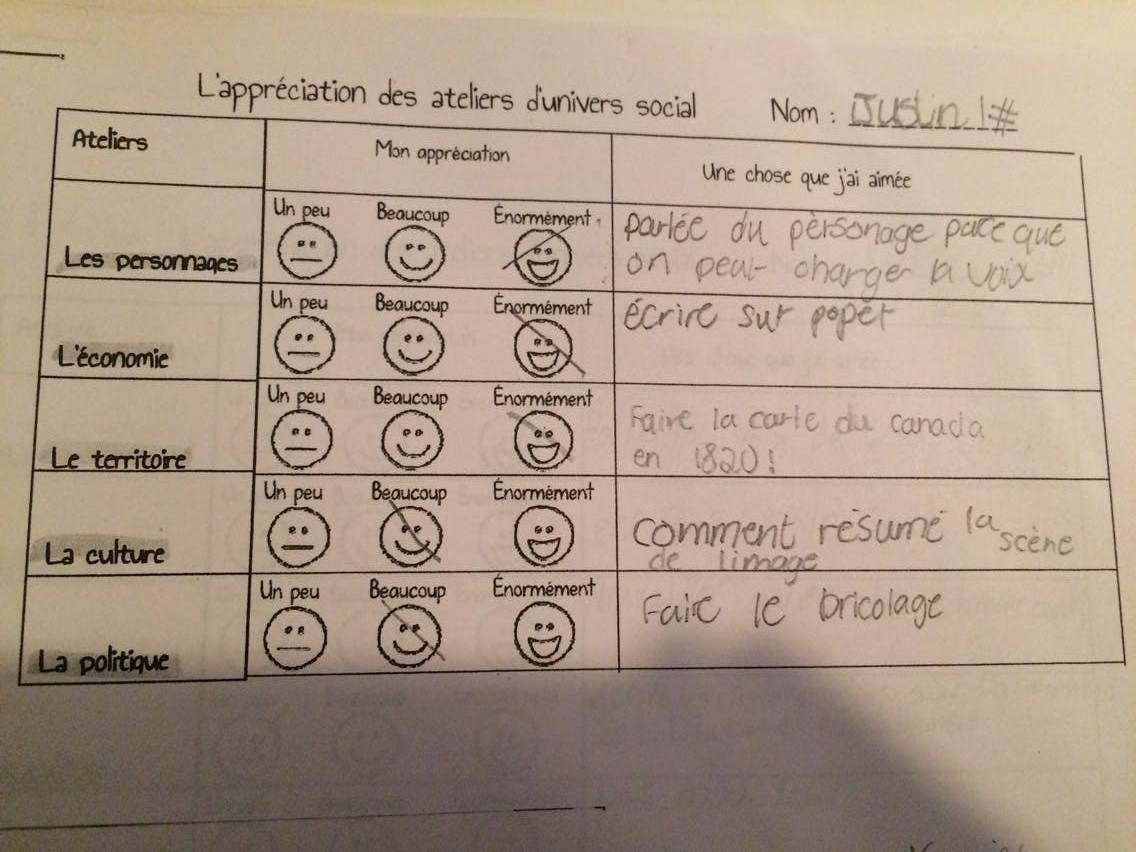 L'appréciation des ateliers d'univers social Nom : Justin 1#
Ateliers Mon appréciation Une chose que j'ai aimée
Un peu Beaucoup Énormément
Les personnages
parlée du pèrsonage parce que
on peut changer la voix
Un peu Beaucoup Énormément
L'économie
écrire sur paper
Un peu Beaucoup Énormément
Le territoire
Faire la carte du canada
en 1820!
Un peu Beaucoup Énormément
La culture
comment résumé la scène
de limage
Un peu Beaucoup Énormément
La politique
Faire le bricolage